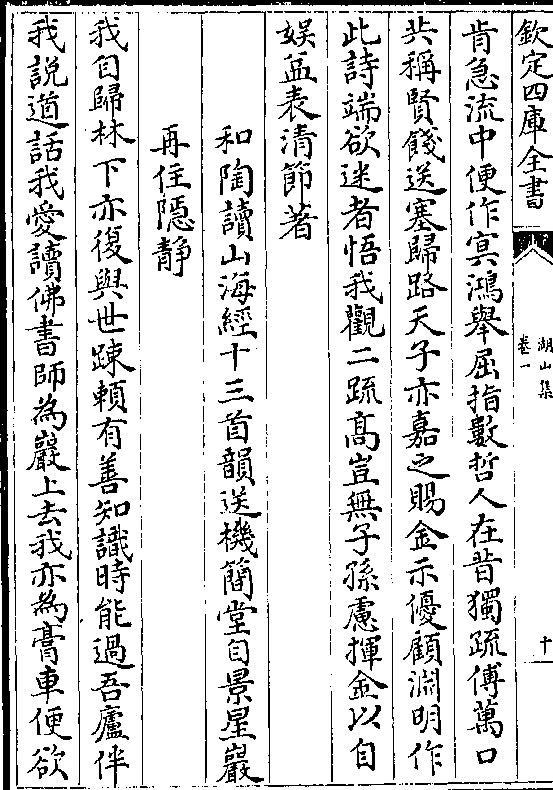 欽定四庫全書
湖山集
卷一
十
肯急流中便作㝠鴻舉屈指數哲人在昔獨疏傅萬口
共稱賢餞送塞歸路天子亦嘉之賜金示優顧淵明作
此詩端欲迷者悟我觀二疏髙豈無子孫慮揮金以自
娱益表清節著
和陶讀山海經十三首韻送機簡堂自景星巖
再住隠静
我自歸林下亦復與世踈頼有善知識時能過吾廬伴
我説道話我愛讀佛書師為巖上去我亦為膏車便欲